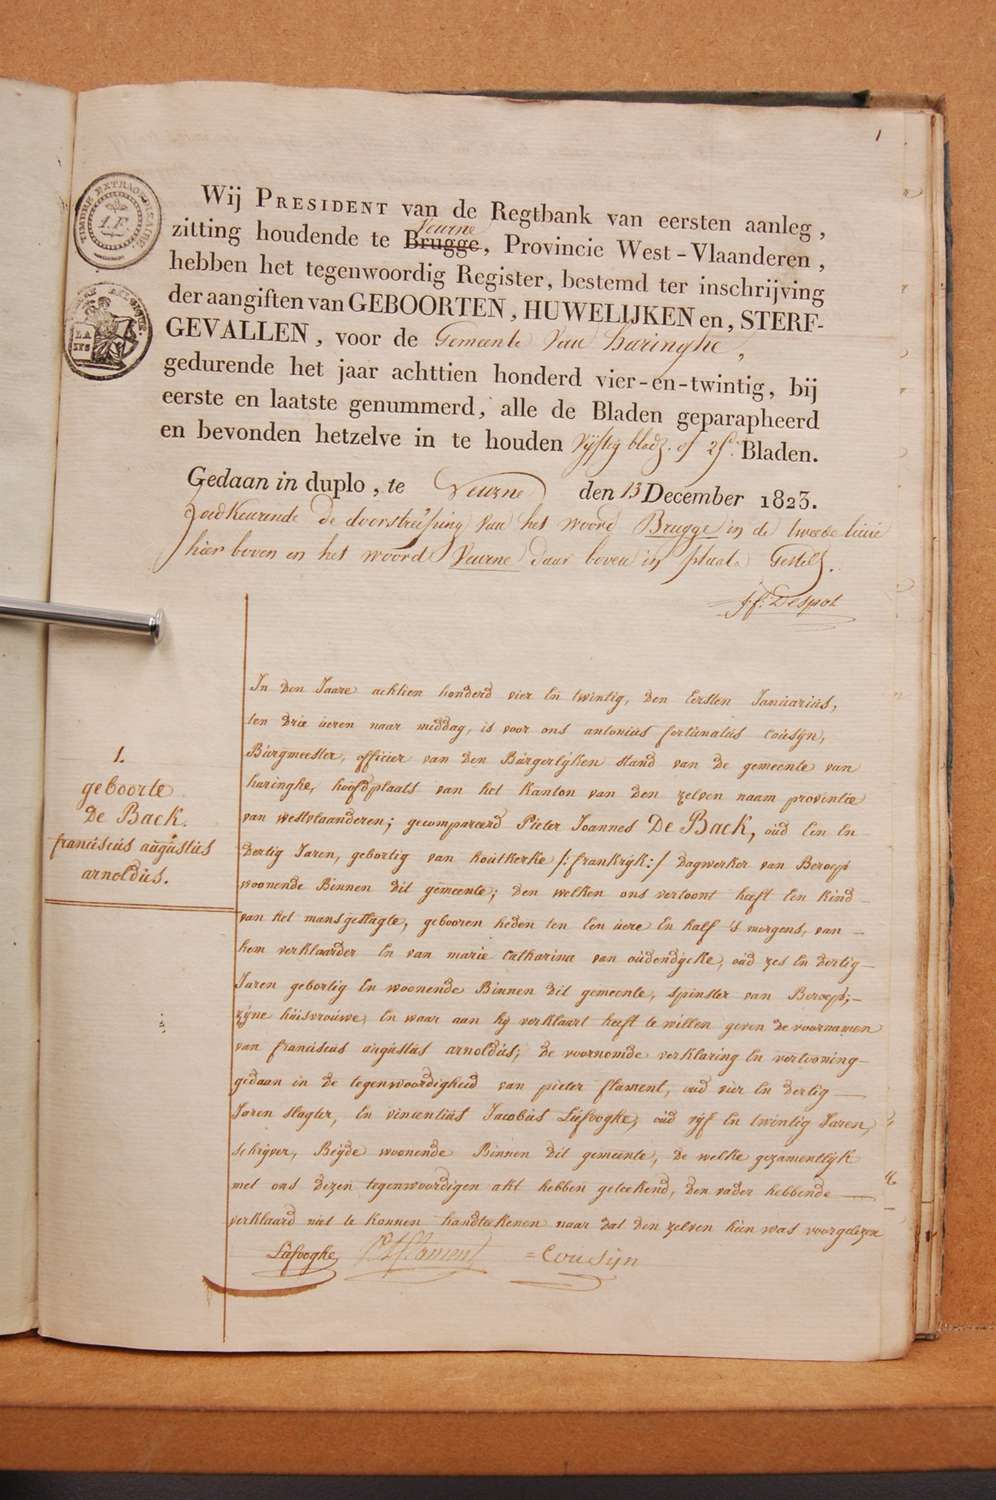 1
TIMBRE EXTRAORDINAIRE
Wij PRESIDENT van de Regtbank van eersten aanleg,
Veurne
zitting houdende te Brugge, Provincie West-Vlaanderen,
hebben het tegenwoordig Register, bestemd ter inschrijving
der aangiften van GEBOORTEN, HUWELIJKEN en, STERF-
GEVALLEN, voor de Gemeente van haringhe,
gedurende het jaar achttien honderd vier-en-twintig, bij
eerste en laatste genummerd, alle de Bladen geparapheerd
en bevonden hetzelve in te houden vijftig bladz. of 25. Bladen.
Gedaan in duplo, te Veurne den 13 December 1823.
Goedkeurende de doorstreping van het woord Brugge in de tweede linie
hier boven en het woord Veurne daar boven in plaats Gesteld.
J.f. Despot
In den Jaare achtien honderd vier En twintig, den Eersten Januarius,
ten drie ueren naar middag, is voor ons antonius fortunatus Cousyn,
Burgmeester, officier van den Burgerlyken stand van de gemeente van
haringhe, hoofdplaats van het Kanton van den zelven naam provintie
van westvlaanderen; gecompareerd Pieter Joannes De Back, oud Een En
dertig Jaren, gebortig van houtkerke /:frankryk:/ dagwerker van Beroep
woonende Binnen dit gemeente; den welken ons vertoont heeft Een kind
van het mansgeslagte, gebooren heden ten Een uere En half 's morgens, van
hem verklaarder En van marie Catharina van oudendycke, oud zes En dertig
Jaren gebortig En woonende Binnen dit gemeente, spinster van Beroep;
zyne huisvrouwe, En waar aan hy verklaart heeft te willen geven de voornamen
van franciscus augustus arnoldus; de voornomde verklaring En vertooning
gedaan in de tegenwoordigheid van pieter flament, oud vier En dertig
Jaren slagter, En vincentius Jacobus Liefooghe, oud vyf En twintig Jaren,
schryver, Beyde woonende Binnen dit gemeente, de welke gezamentlyk
met ons dezen tegenwoordigen akt hebben geteekend, den vader hebbende
verklaard niet te konnen handteekenen naar dat den zelven hun was voorgelezen
1.
geboorte
De Back.
franciscus augustus
arnoldus.
Liefooghe Flament = Cousyn